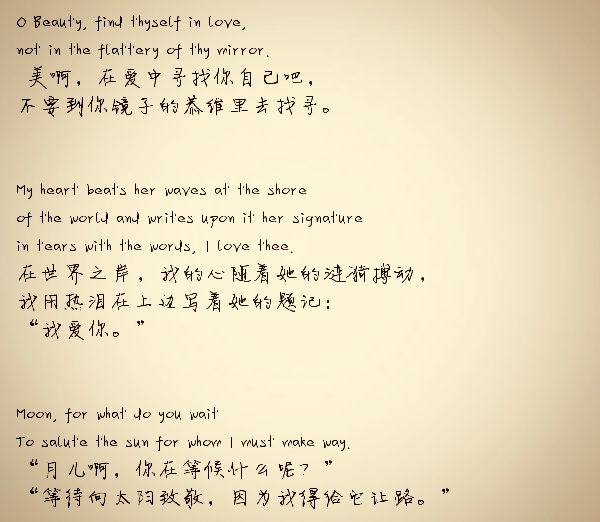 O Beauty, find thyself in love,
not in the flattery of thy mirror.
美啊，在爱中寻找你自己吧，
不要到你镜子的恭维里去找寻。
My heart beats her waves at the shore
of the world and writes upon it her signature
in tears with the words, I love thee.
在世界之岸，我的心随着她的涟漪搏动，
我用热泪在上边写着她的题记：
“我爱你。”
Moon, for what do you wait
To salute the sun for whom I must make way.
“月儿啊，你在等候什么呢？”
“等待向太阳致敬，因为我得给它让路。”